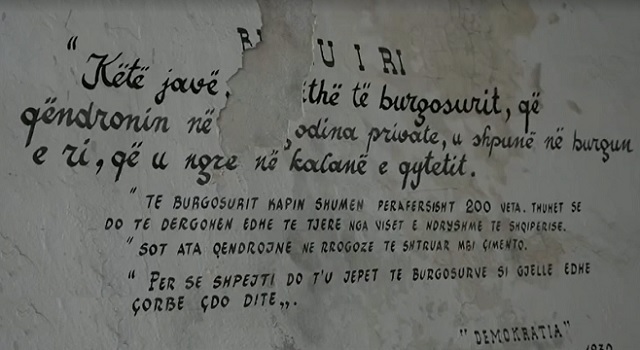 U I RI
"Këtë javë, të burgosurit, që
qëndronin në private, u shpunë në burgun
e ri, që u ngre në kalanë e qytetit.
"TE BURGOSURIT KAPIN SHUMEN PERAFERSISHT 200 VETA. THUHET SE
DO TE DERGOHEN EDHE TE TJERE NGA VISET E NDRYSHME TE SHQIPERISE.
"SOT ATA QENDROJNE NE RROGOZE TE SHTRUAR MBI ÇIMENTO.
"PER SE SHPEJTI DO T'U JEPET TE BURGOSURVE SI GJELLE EDHE
ÇORBE ÇDO DITE„.
"DEMOKRATIA"